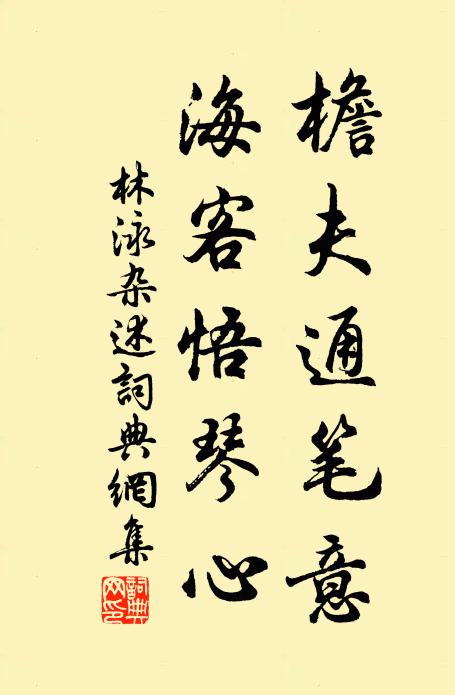 檐夫通笔意
海客悟琴心
林泳杂述詞典網集
詞典網印